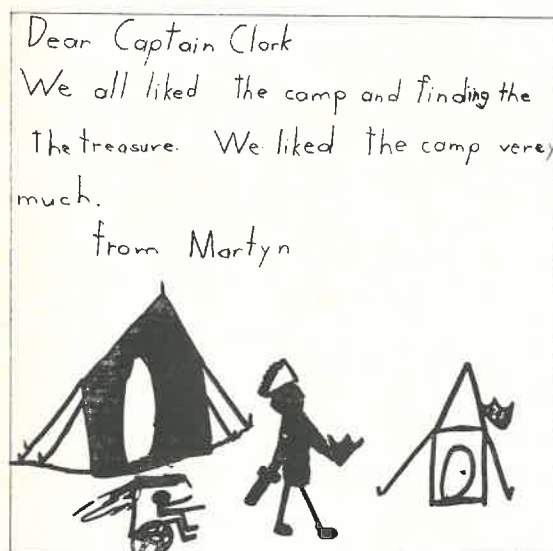 Dear Captain Clark
We all liked the camp and finding the
the treasure. We liked the camp verey
much.
from Martyn